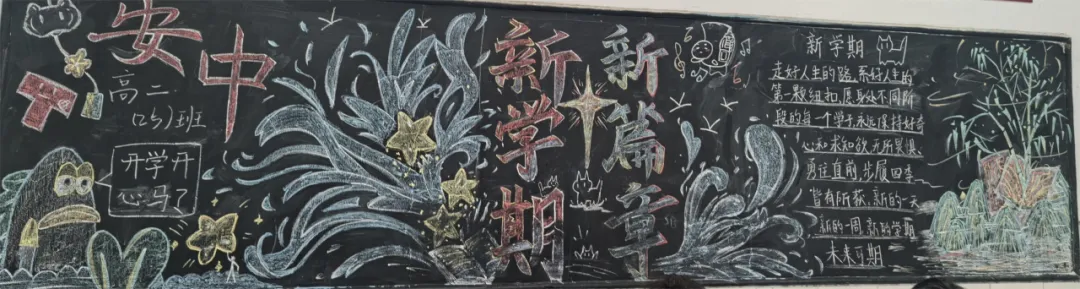 安中
高二
(25)班
开学开
心马了
新学期
新篇章
新学期
走好人生的路,系好人生的
第一颗纽扣,愿身处不同阶
段的每一个学子,永远保持好奇
心和求知欲,无所畏惧
勇往直前,步履回季
皆有所获,新的一天
新的一周,新的学期
未来可期